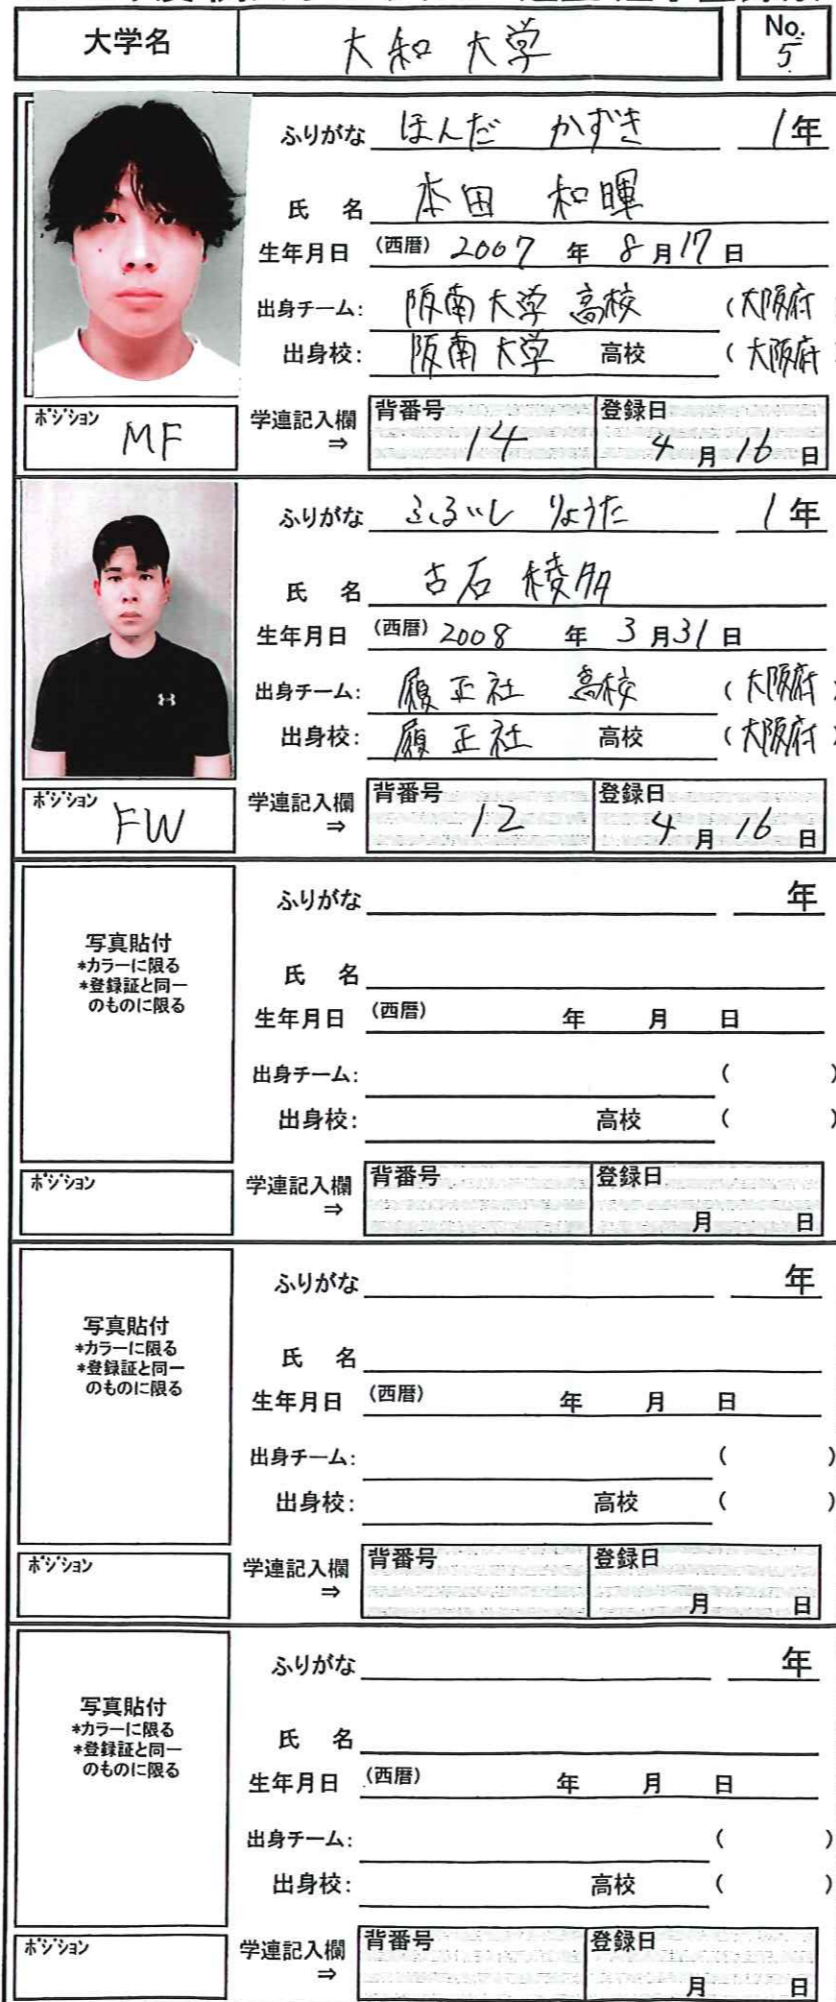 大学名 大和 大学 No. 5
ふりがな ほんだ かずき 1年
氏 名 本田 和暉
生年月日 (西暦) 2007 年 8月17日
出身チーム: 阪南大学 高校 (大阪府
出身校: 阪南大学 高校 (大阪府
ポジション MF 学連記入欄⇒ 背番号 14 登録日 4月16日
ふりがな ふるいし りょうた 1年
氏 名 古石 稜多
生年月日 (西暦) 2008 年 3月31日
出身チーム: 履正社 高校 (大阪府
出身校: 履正社 高校 (大阪府
ポジション FW 学連記入欄⇒ 背番号 12 登録日 4月16日
写真貼付
*カラーに限る
*登録証と同一
のものに限る
ふりがな 年
氏 名
生年月日 (西暦) 年 月 日
出身チーム: ( )
出身校: 高校 ( )
ポジション 学連記入欄⇒ 背番号 登録日 月 日
写真貼付
*カラーに限る
*登録証と同一
のものに限る
ふりがな 年
氏 名
生年月日 (西暦) 年 月 日
出身チーム: ( )
出身校: 高校 ( )
ポジション 学連記入欄⇒ 背番号 登録日 月 日
写真貼付
*カラーに限る
*登録証と同一
のものに限る
ふりがな 年
氏 名
生年月日 (西暦) 年 月 日
出身チーム: ( )
出身校: 高校 ( )
ポジション 学連記入欄⇒ 背番号 登録日 月 日